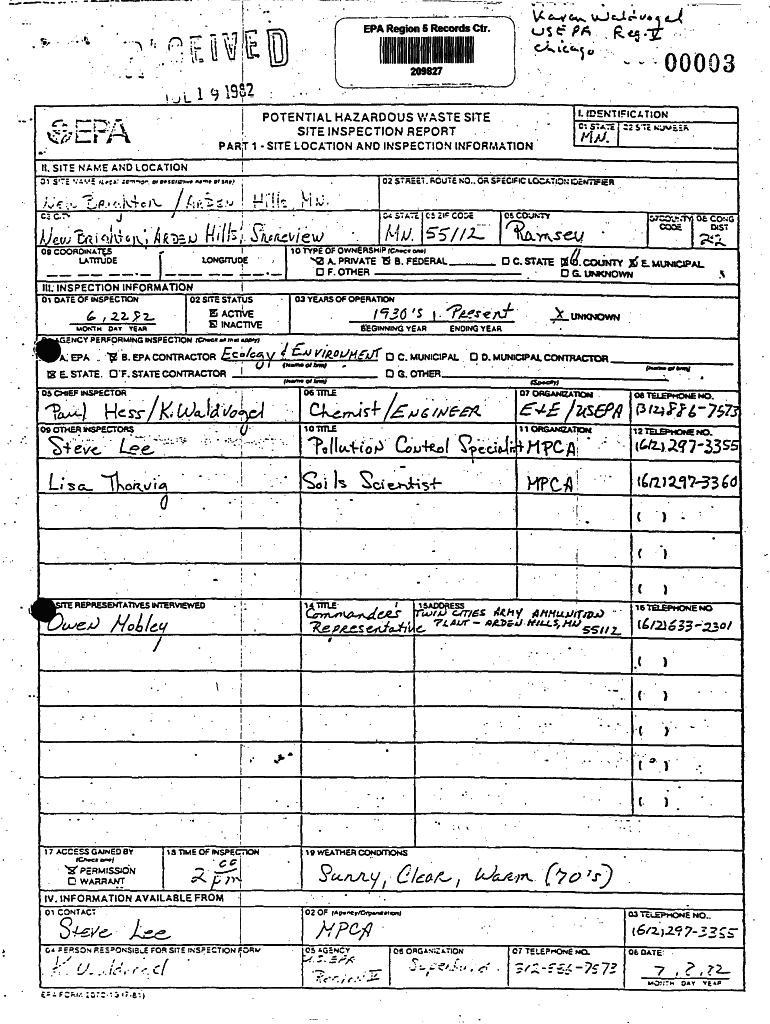 Karen Waldvogel
EPA Region 5 Records Ctr.
USEPA Reg. V
Chicago
RECEIVED
209827
00003
JUL 19 1982
EPA
POTENTIAL HAZARDOUS WASTE SITE
SITE INSPECTION REPORT
PART 1 - SITE LOCATION AND INSPECTION INFORMATION
I. IDENTIFICATION
01 STATE 02 SITE NUMBER
MN.
II. SITE NAME AND LOCATION
01 SITE NAME (Legal, common, or descriptive name of site) 02 STREET, ROUTE NO., OR SPECIFIC LOCATION IDENTIFIER
New Brighton / ARDEN Hills, MN.
03 CITY 04 STATE 05 ZIP CODE 06 COUNTY 07 COUNTY CODE 08 CONG DIST
New Brighton; ARDEN Hills; Shoreview MN. 55112 Ramsey
09 COORDINATES
LATITUDE LONGITUDE
10 TYPE OF OWNERSHIP (Check one)
A. PRIVATE B. FEDERAL C. STATE D. COUNTY E. MUNICIPAL
F. OTHER G. UNKNOWN
III. INSPECTION INFORMATION
01 DATE OF INSPECTION 02 SITE STATUS 03 YEARS OF OPERATION
6, 22 82 ACTIVE 1930's Present X UNKNOWN
MONTH DAY YEAR INACTIVE BEGINNING YEAR ENDING YEAR
AGENCY PERFORMING INSPECTION (Check all that apply)
A. EPA B. EPA CONTRACTOR Ecology & ENVIRONMENT C. MUNICIPAL D. MUNICIPAL CONTRACTOR
(Name of firm) (Name of firm)
E. STATE F. STATE CONTRACTOR G. OTHER
(Name of firm) (Specify)
05 CHIEF INSPECTOR 06 TITLE 07 ORGANIZATION 08 TELEPHONE NO.
Paul Hess/K. Waldvogel Chemist/ENGINEER E+E /USEPA (312) 886-7573
09 OTHER INSPECTORS 10 TITLE 11 ORGANIZATION 12 TELEPHONE NO.
Steve Lee Pollution Control Specialist MPCA (612) 297-3355
Lisa Thorvig Soils Scientist MPCA (612) 297-3360
( )
( )
( )
SITE REPRESENTATIVES INTERVIEWED 14 TITLE 15 ADDRESS 16 TELEPHONE NO
Owen Mobley Commander's Representative TWIN CITIES ARMY AMMUNITION PLANT - ARDEN HILLS, MN 55112 (612) 633-2301
( )
( )
( )
( )
( )
17 ACCESS GAINED BY 18 TIME OF INSPECTION 19 WEATHER CONDITIONS
(Check one)
PERMISSION 2 00 pm Sunny, Clear, Warm (70's)
WARRANT
IV. INFORMATION AVAILABLE FROM
01 CONTACT 02 OF (Agency/Organization) 03 TELEPHONE NO.
Steve Lee MPCA (612) 297-3355
04 PERSON RESPONSIBLE FOR SITE INSPECTION FORM 05 AGENCY 06 ORGANIZATION 07 TELEPHONE NO. 08 DATE
K Waldvogel U.S. EPA Region V Superfund 312-886-7573
MONTH DAY YEAR
EPA FORM 2070-13 (7-81)